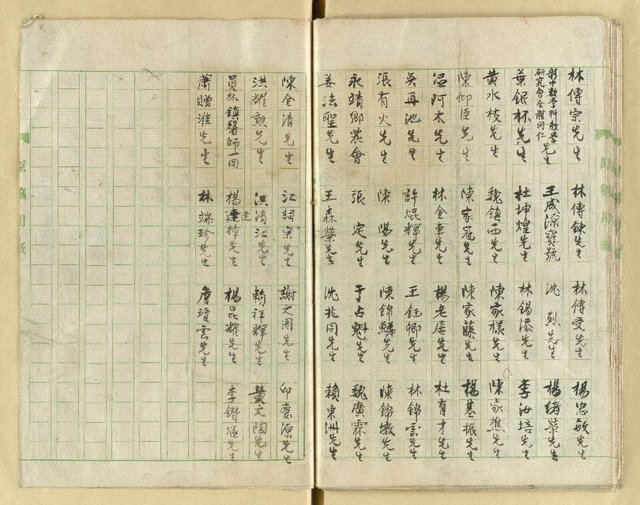 林傳宗先生 林傳 先生 林傳受先生 楊忠敏先生
彰中數學科教學研究會全體同仁 先生 王成源寶號 沈烈先生 楊緒榮先生
葉銀林先生 杜坤煌先生 林錫 先生 李汝培先生
黃水枝先生 魏鎮西先生 陳家樣先生 陳家 先生
陳仰臣先生 陳家冠先生 陳家藤先生 楊基振先生
温阿木先生 林金車先生 楊老居先生 杜有才先生
吳再池先生 許焜輝先生 王鈺卿先生 林錦雲先生
張有火先生 陳陽先生 陳錦鱗先生 陳錦墩先生
永靖鄉農會 張定先生 于占魁先生 魏廣霖先生
姜法聖先生 王森榮先生 沈兆周先生 賴東洲先生
陳金清先生 江詞 先生 謝之同先生 邱震源先生
洪耀勲先生 洪清江先生 賴祥輝先生 黃文陶先生
員林鎮醫師一同 楊逢 先生 楊昆耀先生 李 先生
蕭贈 先生 林瑞珍先生 詹瓊雲先生
原稿用紙